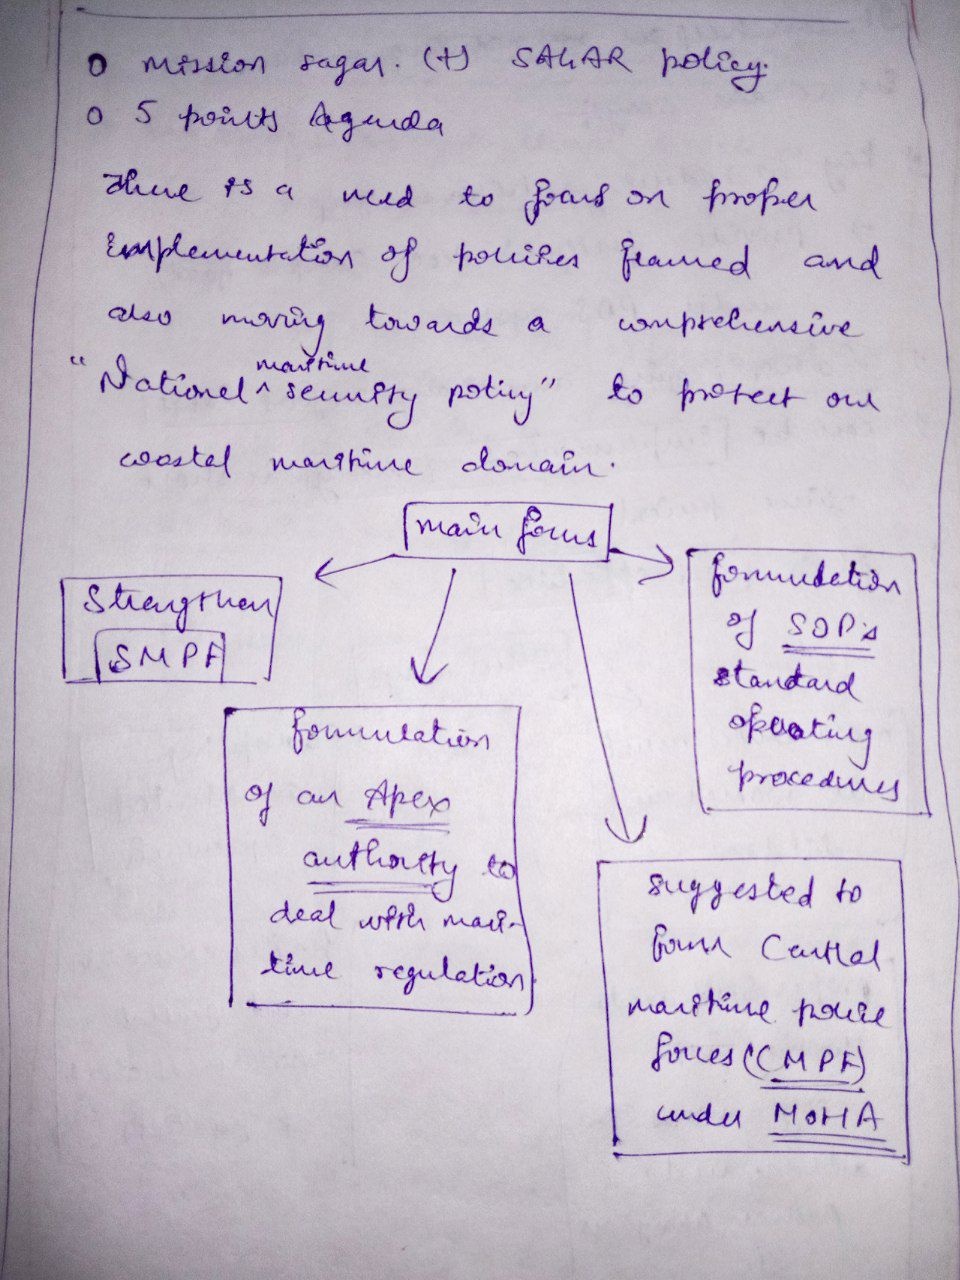 o mission sagar. (+) SAGAR policy.
o 5 points Agenda
There is a need to focus on proper
implementation of policies framed and
also moving towards a comprehensive
"National ^ maritime security policy" to protect our
coastal maritime domain.
main focus
Strengthen
SMPF
formulation
of an Apex
authority to
deal with mari-
time regulation
suggested to
form Central
maritime police
forces (CMPF)
under MoHA
formulation
of SOP's
standard
operating
procedures